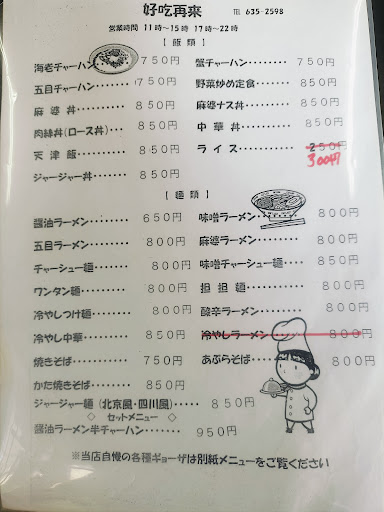 好吃再来
TEL 635-2598
営業時間 11時〜15時 17時〜22時
【飯類】
海老チャーハン 750円 蟹チャーハン・・・・ 750円
五目チャーハン 750円 野菜炒め定食・・・ 850円
麻婆丼・・・・・・・ 850円 麻婆ナス丼・・・・ 850円
肉絲丼(ロース丼)・・・・ 850円 中華丼・・・・・・ 850円
天津飯・・・・・・・ 850円 ライス・・・・・・・ 250円
300円
ジャージャー丼・・・・・・ 850円
【麺類】
醤油ラーメン・・・・・・ 650円 味噌ラーメン・・・ 800円
五目ラーメン・・・・・・ 800円 麻婆ラーメン・・・・ 850円
チャーシュー麺・・・・・ 800円 味噌チャーシュー麺・・・ 850円
ワンタン麺・・・・・・ 800円 担担麺・・・・・・ 800円
冷やしつけ麺・・・・・ 800円 酸辛ラーメン・・・・ 800円
冷やし中華・・・・・・ 850円 冷やしラーメン・・・・ 800円
焼きそば・・・・・・・ 750円 あぶらそば・・・・ 800円
かた焼きそば・・・・・ 850円
ジャージャー麺(北京風・四川風)・・・・・ 850円
◇ セットメニュー ◇
醤油ラーメン半チャーハン・・・・・・・ 950円
※当店自慢の各種ギョーザは別紙メニューをご覧ください